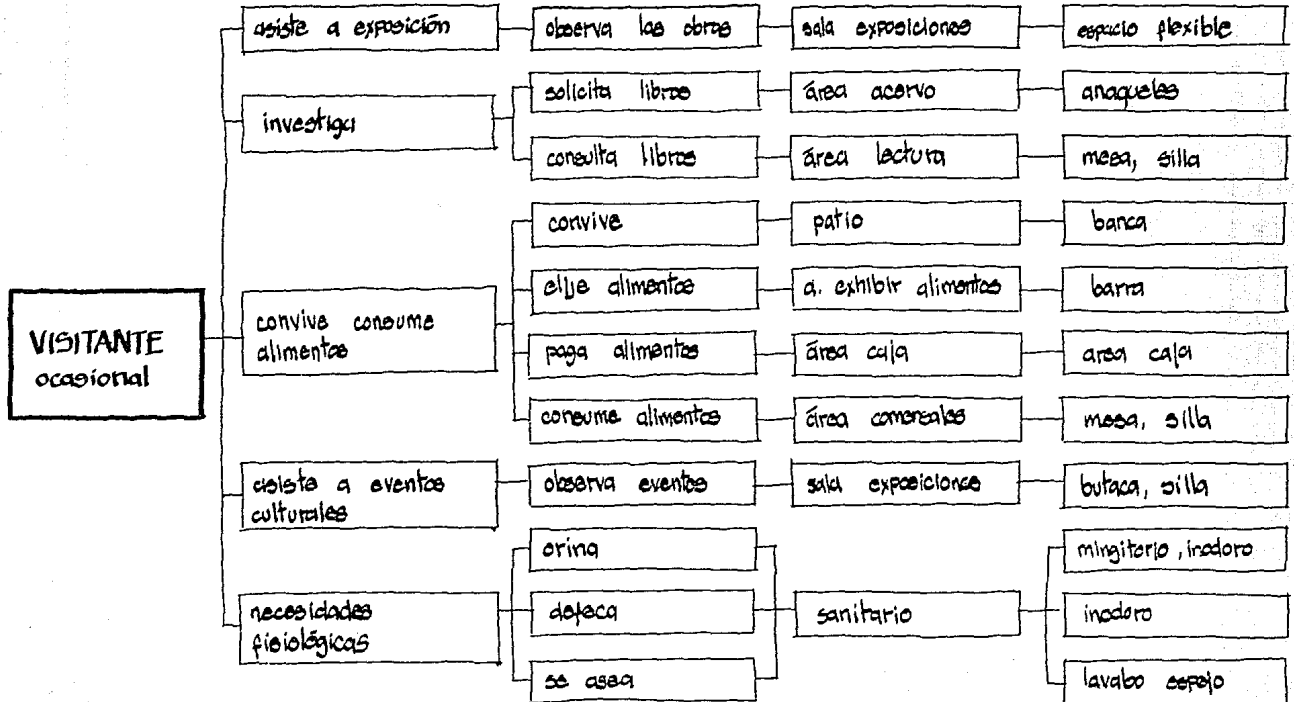 asiste a exposición
observa las obras
sala exposiciones
espacio flexible
investiga
solicita libros
área acervo
anaqueles
consulta libros
área lectura
mesa, silla
VISITANTE
ocasional
convive consume
alimentos
convive
patio
banca
elije alimentos
a. exhibir alimentos
barra
paga alimentos
área caja
area caja
consume alimentos
área comensales
mesa, silla
asiste a eventos
culturales
observa eventos
sala exposiciones
butaca, silla
necesidades
fisiológicas
orina
defeca
se asea
sanitario
mingitorio, inodoro
inodoro
lavabo espejo